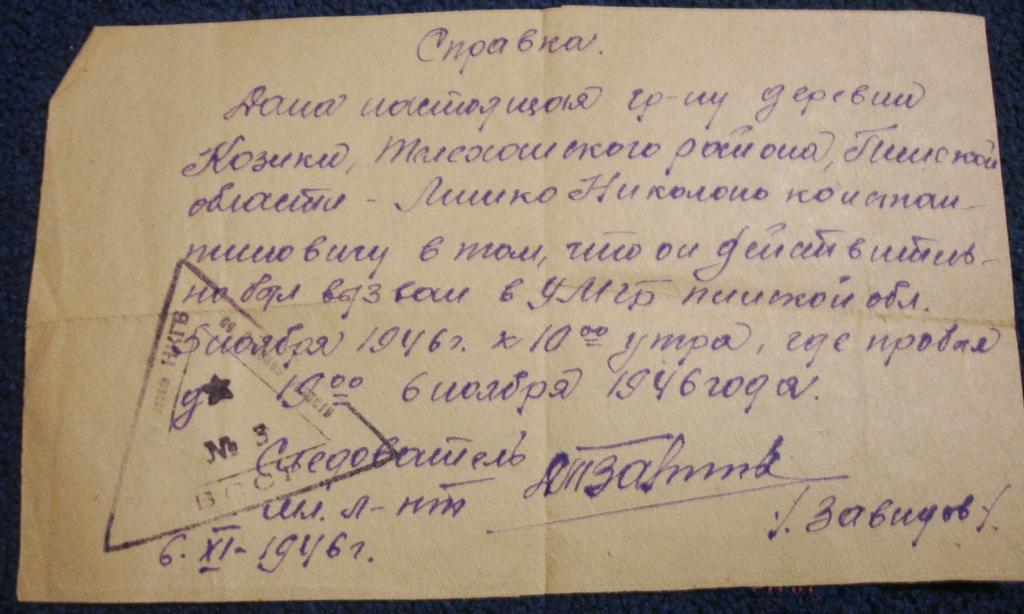 Справка.
Дана настоящая гр-ну деревни
Козики, Телеханского района, Пинской
области - Линко Николаю констан-
тиновичу в том, что он действитель-
но был вызван в УМГБ пинской обл.
5 ноября 1946 г. к 10 00 утра, где пробыл
до 19 00 6 ноября 1946 года.
Следователь
мл. л-нт
/. Завидов /.
6. XI - 1946 г.
НКГБ
№ 3